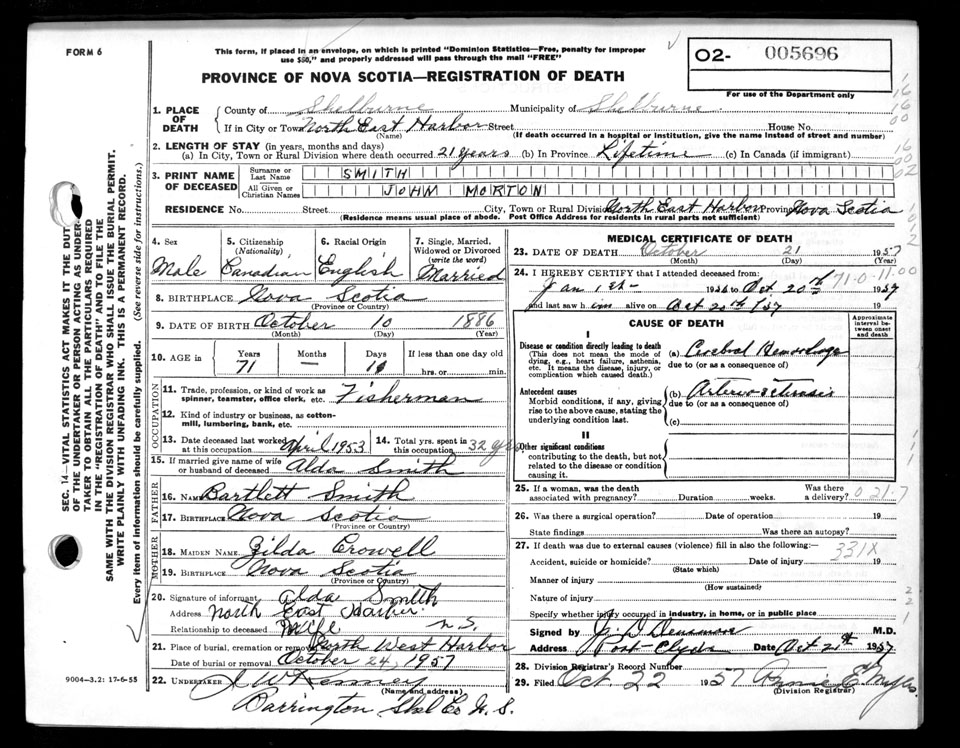 FORM 6
This form, if placed in an envelope, on which is printed "Dominion Statistics—Free, penalty for improper
use $50," and properly addressed will pass through the mail "FREE"
O2- 005696
For use of the Department only
PROVINCE OF NOVA SCOTIA—REGISTRATION OF DEATH
1. PLACE OF DEATH County of Shelburne Municipality of Shelburne
If in City or Town North East Harbor Street House No.
(Name) (If death occurred in a hospital or institution, give the name instead of street and number)
2. LENGTH OF STAY (in years, months and days)
(a) In City, Town or Rural Division where death occurred 21 years (b) In Province Lifetime (c) In Canada (if immigrant)
3. PRINT NAME OF DECEASED
Surname or Last Name SMITH
All Given or Christian Names JOHN MORTON
RESIDENCE No. Street City, Town or Rural Division North East Harbor Province Nova Scotia
(Residence means usual place of abode. Post Office Address for residents in rural parts not sufficient)
4. Sex Male
5. Citizenship (Nationality) Canadian
6. Racial Origin English
7. Single, Married, Widowed or Divorced (write the word) Married
8. BIRTHPLACE Nova Scotia
(Province or Country)
9. DATE OF BIRTH October 10 1886
(Month) (Day) (Year)
10. AGE in Years 71 Months — Days 11 If less than one day old
hrs. or min.
OCCUPATION
11. Trade, profession, or kind of work as
spinner, teamster, office clerk, etc. Fisherman
12. Kind of industry or business, as cotton-
mill, lumbering, bank, etc.
13. Date deceased last worked at this occupation April 1953
14. Total yrs. spent in this occupation 32 yrs
15. If married give name of wife or husband of deceased Alda Smith
FATHER
16. Name Bartlett Smith
17. Birthplace Nova Scotia
(Province or Country)
MOTHER
18. Maiden Name Zilda Crowell
19. Birthplace Nova Scotia
(Province or Country)
20. Signature of informant Alda Smith
Address North East Harbor N.S.
Relationship to deceased Wife
21. Place of burial, cremation or removal North West Harbor
Date of burial or removal October 24, 1957
22. Undertaker J W Kenney
(Name and address)
Barrington Shel Co N. S.
9004—3.2: 17-6-55
MEDICAL CERTIFICATE OF DEATH
23. DATE OF DEATH October 21 1957
(Month) (Day)
24. I HEREBY CERTIFY that I attended deceased from:
Jan 1st 1956 to Oct 20th 1957
71-0-11.00
and last saw him alive on Oct 20th 1957 19
CAUSE OF DEATH
Approximate interval between onset and death
I
Disease or condition directly leading to death
(This does not mean the mode of
dying, e.g., heart failure, asthenia,
etc. It means the disease, injury, or
complication which caused death.)
(a) Cerebral Hemorrhage
due to (or as a consequence of)
Antecedent causes
Morbid conditions, if any, giving
rise to the above cause, stating the
underlying condition last.
(b)
due to (or as a consequence of)
(c)
II
Other significant conditions
contributing to the death, but not
related to the disease or condition
causing it.
25. If a woman, was the death
associated with pregnancy? Duration weeks. Was there a delivery?
0 21.7
26. Was there a surgical operation? Date of operation 19
State findings Was there an autopsy?
27. If death was due to external causes (violence) fill in also the following:—
331X
Accident, suicide or homicide? Date of injury 19
(State which)
Manner of injury
(How sustained)
Nature of injury
Specify whether injury occurred in industry, in home, or in public place
Signed by M.D.
Address Port Clyde Date Oct 21st 1957
28. Division Registrar's Record Number
29. Filed Oct. 22 1957
(Division Registrar)
SEC. 14—VITAL STATISTICS ACT MAKES IT THE DUTY
OF THE UNDERTAKER OR PERSON ACTING AS UNDER-
TAKER TO OBTAIN ALL THE PARTICULARS REQUIRED
IN THE "REGISTRATION OF DEATH" AND TO FILE THE
SAME WITH THE DIVISION REGISTRAR WHO SHALL ISSUE THE BURIAL PERMIT.
WRITE PLAINLY WITH UNFADING INK. THIS IS A PERMANENT RECORD.
Every item of information should be carefully supplied. (See reverse side for instructions.)